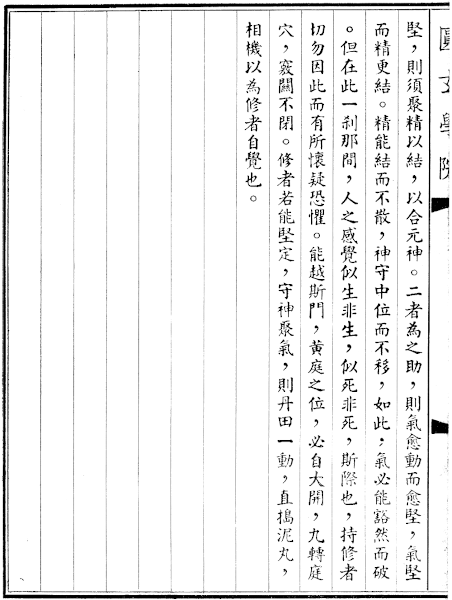 堅，則須聚精以結，以合元神。二者為之助，則氣愈動而愈堅，氣堅
而精更結。精能結而不散，神守中位而不移，如此；氣必能豁然而破
。但在此一刹那間，人之感覺似生非生，似死非死，斯際也，持修者
切勿因此而有所懷疑恐懼。能越斯門，黃庭之位，必自大開，九轉庭
穴，竅關不閉。修者若能堅定，守神聚氣，則丹田一動，直搗泥丸，
相機以為修者自覺也。